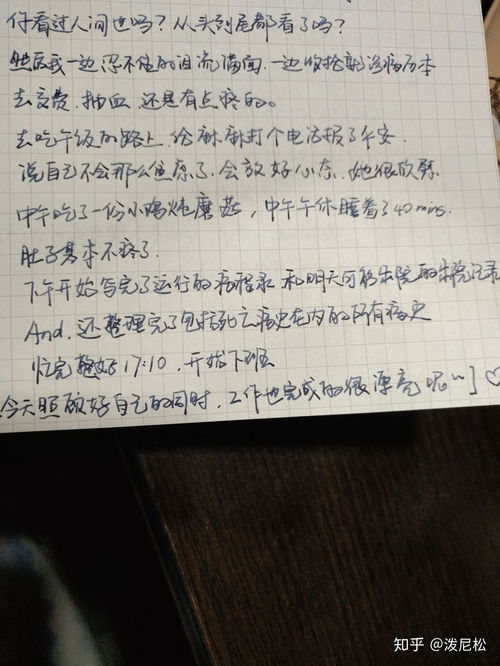 你看过人间世吗？从头到尾都看了吗？
然后我一边忍不住的泪流满面，一边收拾就诊病历本
去交费，抽血，还是有点疼的。
去吃午饭的路上，给麻麻打个电话报了平安
说自己不会那么焦虑了，会放好心态，她很欣慰
中午吃了一份小鸡炖蘑菇，中午午休睡着了40mins.
肚子基本不疼了.
下午开始写完了运行的病程录，和明天可能出院的出院记录
And，还整理完了包括死亡病史在内的所有病史
忙完整好17:10，开始下班
今天照顾好自己的同时，工作也完成的很漂亮呢～] ♡
知乎 @泼尼松